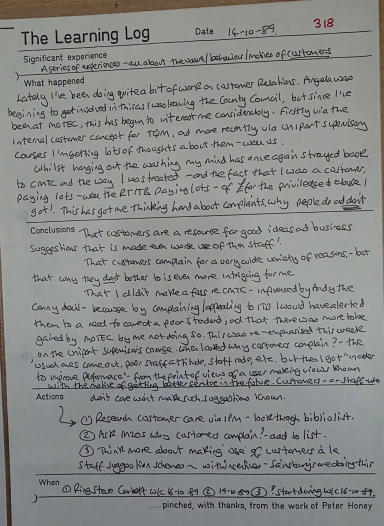 318
The Learning Log Date 14-10-89
Significant experience
A series of experiences - all about the values/behaviour/motives of customers
What happened
Lately I've been doing quite a bit of work on Customer Relations. Angela was
beginning to get involved in this as I was leaving the County Council, but since I've
been at MOTEC, this has begun to interest me considerably. Firstly via the
internal customer concept for TQM, and more recently via Unipart Supervisory
Courses I'm getting lots of thoughts about them
Whilst hanging out the washing my mind has once again strayed back
to CMTC and the way I was treated - and the fact that I was a customer,
paying lots - well the RTITB paying lots - of £ for the priviledge of abuse I
got! This has got me thinking hard about complaints, why people do and don't
Conclusions That customers are a resource for good ideas and business
suggestions that is made even worse use of than staff!
That customers complain for a very wide variety of reasons, - but
that why they don't bother to is even more intriguing for me.
That I didn't make a fuss re CMTC - influenced by Andy the
Canny devil - because by complaining/appealing to ITD I would have alerted
them to a need to correct a poor standard, and that there was more to be
gained by MOTEC by me not doing so. This was re-emphasised this week
on the Unipart Supervisors course. When I asked why customers complain? - the
usual ones came out, poor staff attitude, staff rude, etc. but then I got "in order
to improve performance" - from the point of view of a user making views known
with the notion of getting better service in the future. Customers - or staff who
Actions don't care won't make such suggestions known.
① Research customer care via IPM - look through biblio list.
② Ask MIOs why customers complain? - add to list.
③ Think more about making 'use' of customers à la
staff suggestion schemes ~ with incentives - Sainsburys are doing this
When
① Ring Steve Corbett w/c 16-10-89 ② 19-10-89 ③ start during w/c 16-10-89
....pinched, with thanks, from the work of Peter Honey